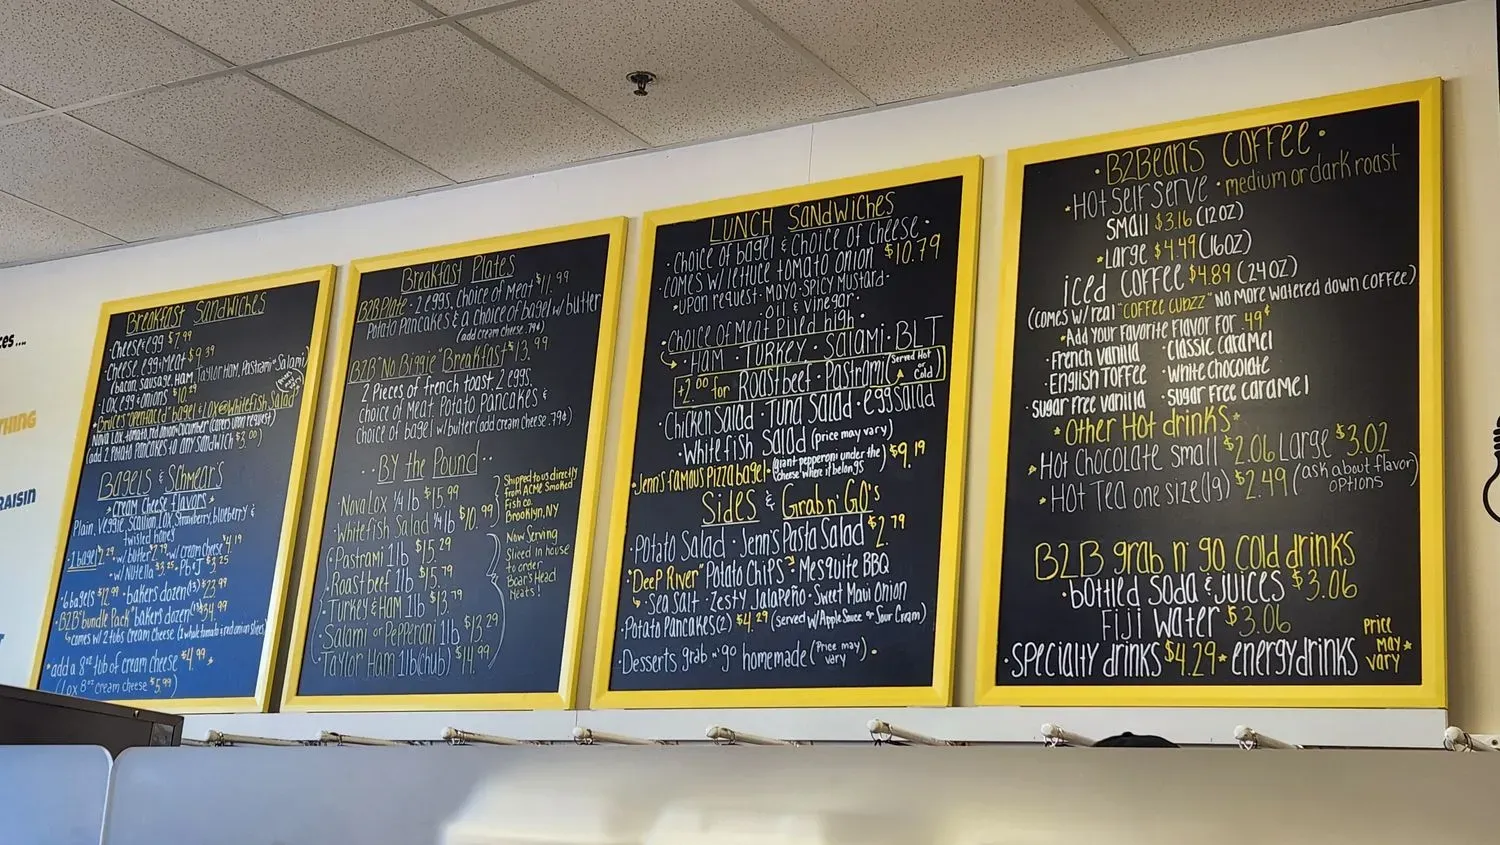 ces....
THING
RAISIN
Breakfast Sandwiches
· Cheese & egg $7.99
· Cheese, egg & Meat $9.39
(bacon, sausage, Ham, Taylor Ham, Pastrami or Salami)
· Lox, egg & onions $10.29
bagel & Lox or Whitefish Salad
Nova Lox, tomato, red onion, cucumber (capers upon request)
(add 2 Potato Pancakes to any Sandwich $3.00)
Bagels & Schmears
* cream cheese flavors *
Plain, Veggie, Scallion, Lox, Strawberry, blueberry &
twisted honey
· 1 bagel · w/butter · w/ cream cheese $4.19
· w/ Nutella $3.25 · Pb & J $3.25
· 6 bagels $12.99 · bakers dozen (13) $23.99
· B2B "bundle Pack" bakers dozen (13) $34.99
comes w/ 2 tubs cream cheese (2 whole tomato & red onion slices)
* add a 8oz tub of cream cheese $4.99 *
(Lox 8oz cream cheese $5.99)
Breakfast Plates
B2B Plate · 2 eggs, choice of Meat $11.99
Potato Pancakes & a choice of bagel w/ butter
(add cream cheese .79¢)
B2B "No Biggie" Breakfast $13.99
2 Pieces of french toast, 2 eggs,
choice of Meat, Potato Pancakes &
choice of bagel w/butter (add cream cheese .79¢)
·· By the Pound ··
· Nova Lox 1/4 lb $15.99
· Whitefish Salad 1/4 lb $10.99
Shipped to us directly
from ACME Smoked
Fish co.
Brooklyn, NY
· Pastrami 1lb $15.29
· Roast beef 1lb $15.79
· Turkey & HAM 1lb $13.79
· Salami or Pepperoni 1lb $13.29
· Taylor Ham 1lb (chub) $14.99
Now Serving
Sliced in house
to order
Boar's Head
Meats!
LUNCH SANdWicHES
· Choice of bagel & Choice of Cheese · $10.79
· comes w/ lettuce tomato onion
* upon request · Mayo · Spicy Mustard ·
· Oil & Vinegar ·
· Choice of Meat Piled high ·
HAM · TURKEY · Salami · BLT
+2.00 for Roast beef · Pastrami (Served Hot or Cold)
· Chicken Salad · Tuna Salad · egg Salad
· Whitefish Salad (price may vary)
· Jenn's famous Pizza bagel · (giant pepperoni under the cheese where it belongs) $9.19
Sides & Grab n' GO's
· Potato Salad · Jenn's Pasta Salad $2.79
"Deep River" Potato Chips · Mesquite BBQ
· Sea Salt · Zesty Jalapeño · Sweet Maui Onion
· Potato Pancakes (2) $4.29 (served w/ Apple Sauce or Sour Cream)
· Desserts grab n' go homemade (Price may vary) ·
· B2Beans COFFEE ·
* HOt Self Serve · medium or dark roast
Small $3.16 (12oz)
* Large $4.49 (16oz)
iced COFFEE $4.89 (24oz)
(comes w/ real "COFFEE CUBZZ" No More Watered down coffee)
* Add Your Favorite Flavor For .49¢
· French Vanilla · Classic Caramel
· English Toffee · White Chocolate
· Sugar Free Vanilla · Sugar Free Caramel
* Other Hot drinks *
* Hot Chocolate Small $2.06 Large $3.02
* HOT Tea one size (lg) $2.49 (ask about flavor options)
B2B grab n' go cold drinks
· bottled Soda & Juices $3.06
Fiji Water $3.06
· Specialty drinks $4.29 * energy drinks
Price
may *
vary